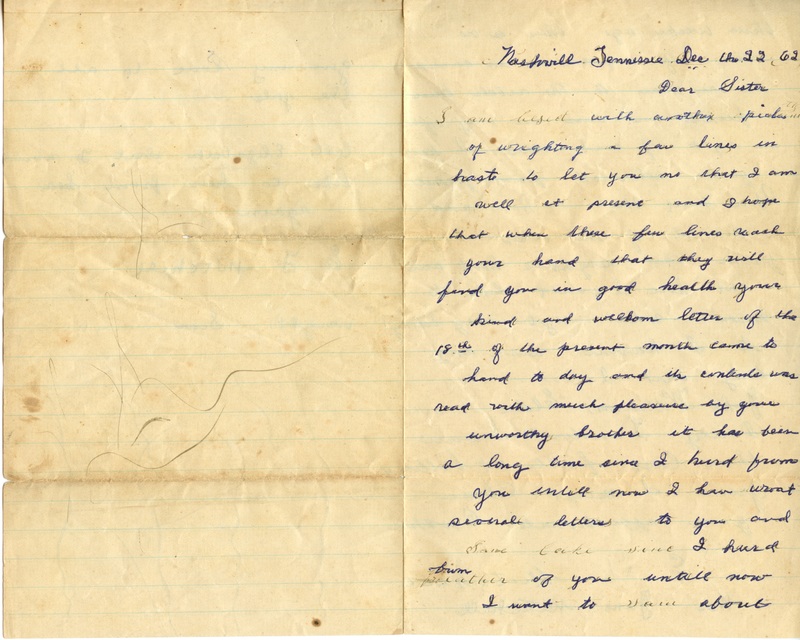 Nashvill Tennessee Dec the 22, 62
Dear Sister
I am with another
of wrighting a few lines in
hast to let you no that I am
well at present and I hope
that when these few lines reach
your hand that they will
find you in good health your
kind and wellkom letter of the
18th of the present month came to
hand to day and its contents was
read with much pleasure by your
unworthy brother it has been
a long time since I hurd from
you untill now I hav wroat
several letters to you and
I hurd
of you untill now
I want to about